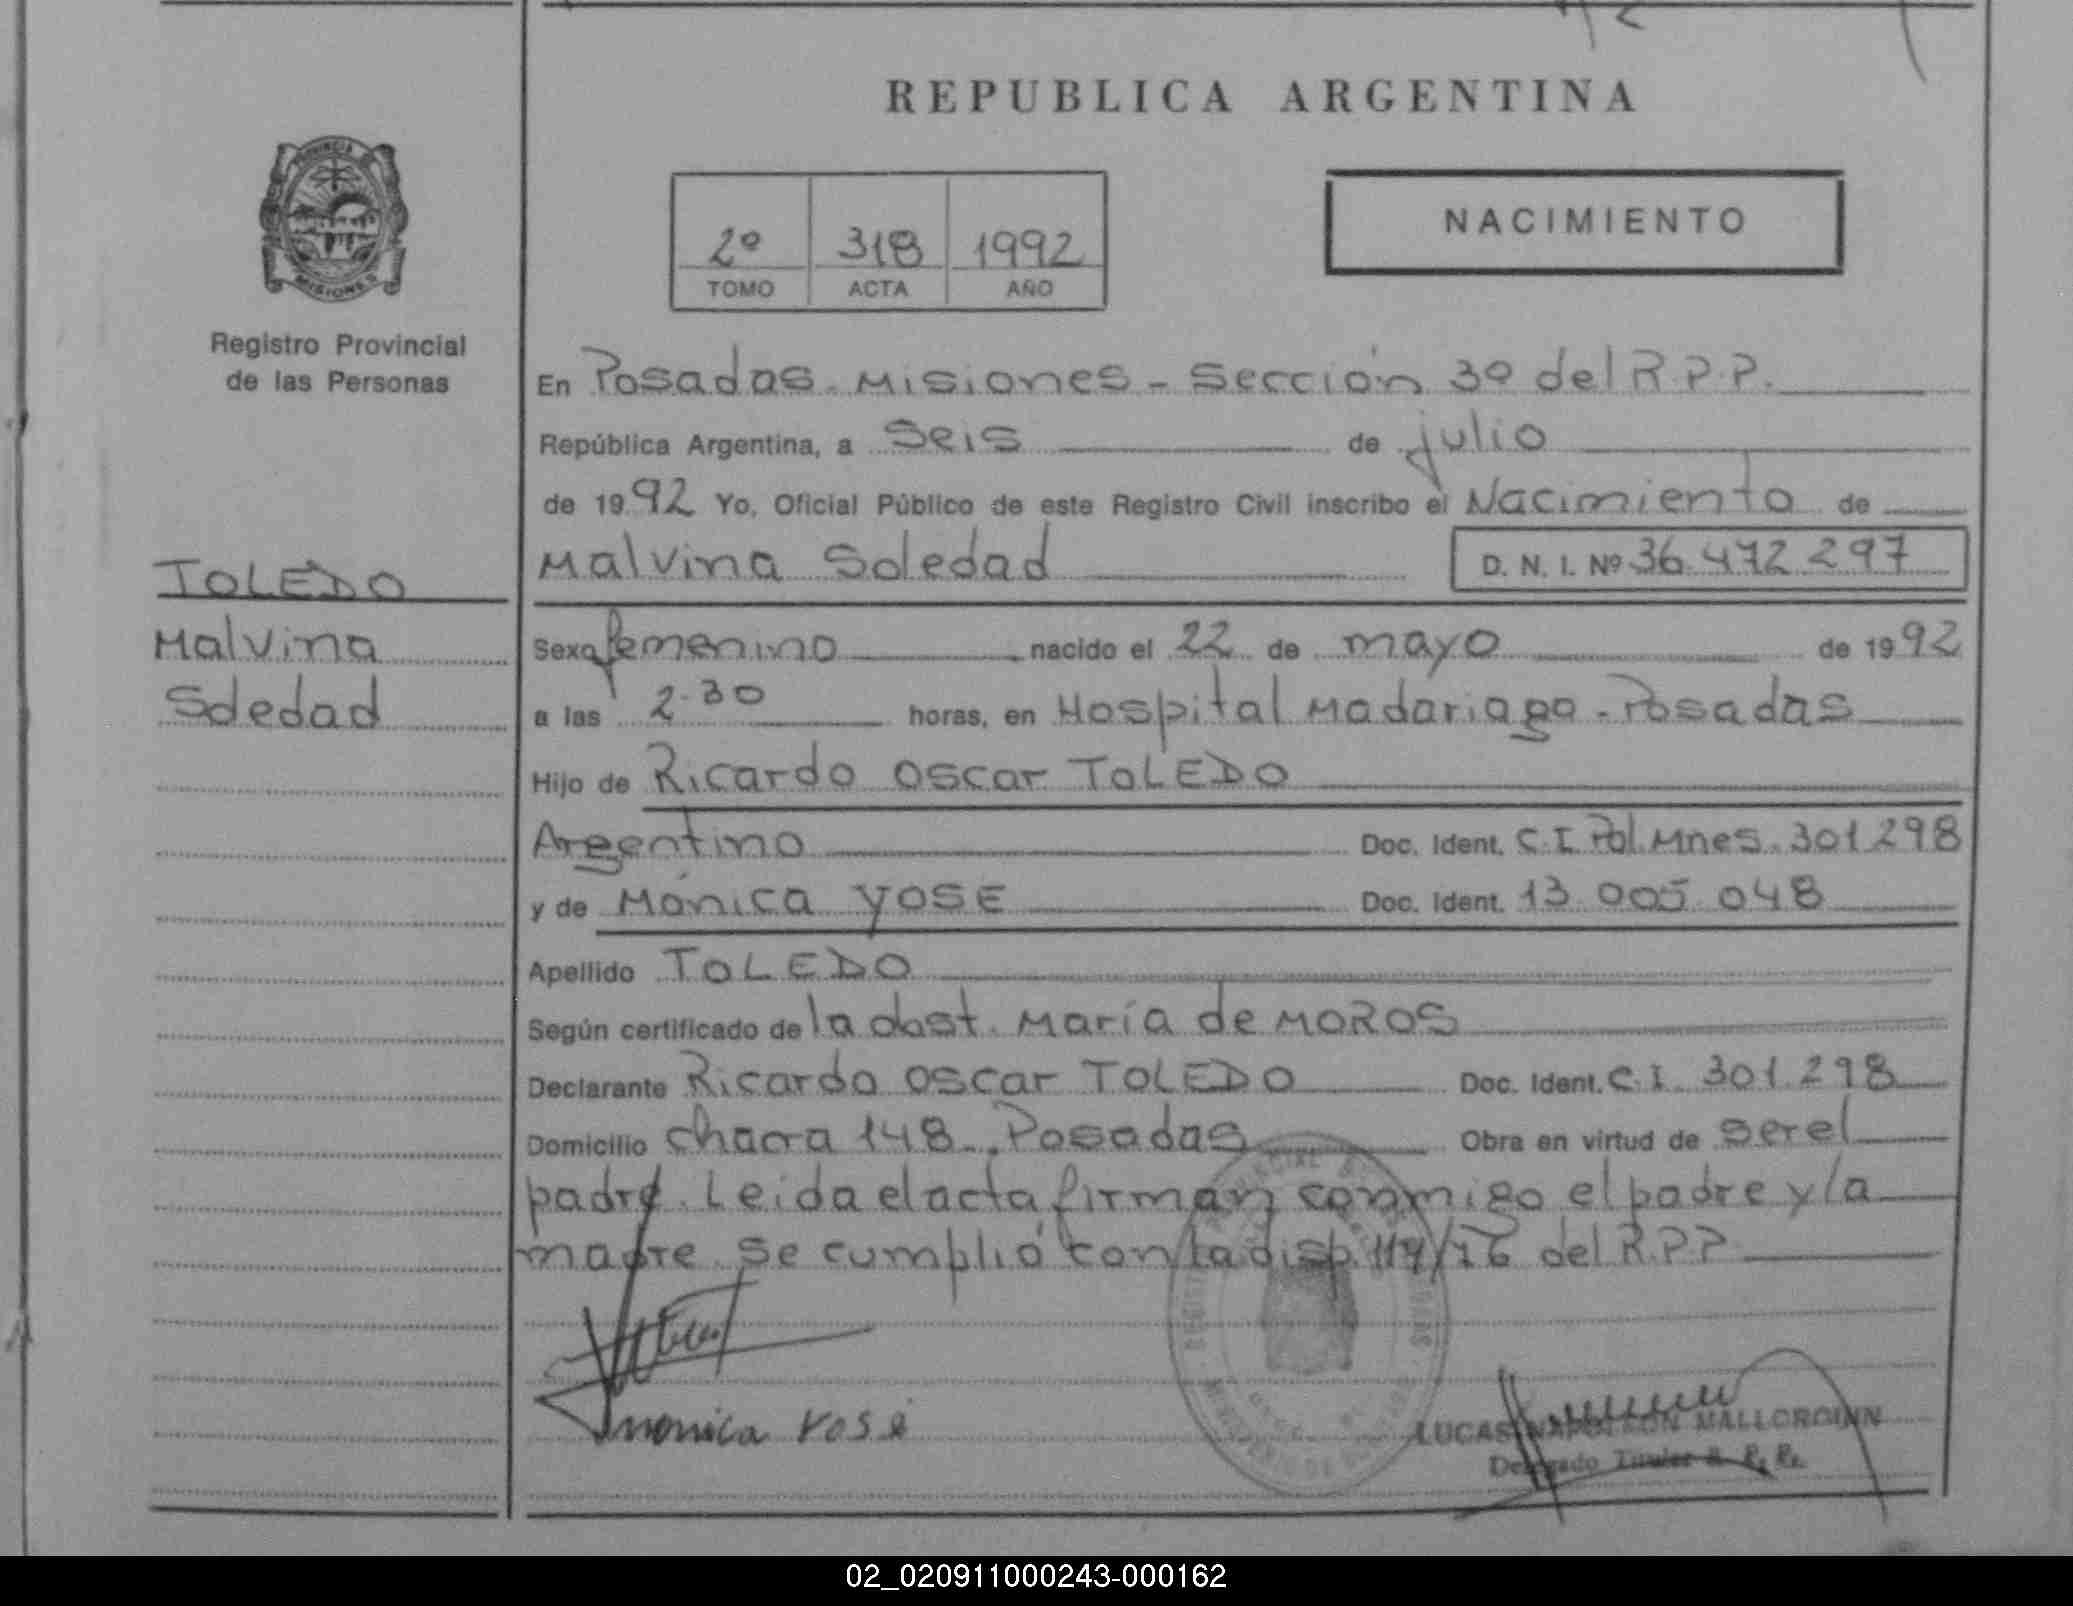 REPUBLICA ARGENTINA
PROVINCIA DE
MISIONES
Registro Provincial
de las Personas
TOLEDO
Malvina
Soledad
2º 318 1992
TOMO ACTA AÑO
NACIMIENTO
En Posadas - Misiones - Sección 3º del R.P.P.
República Argentina, a seis de julio
de 1992 Yo, Oficial Público de este Registro Civil inscribo el Nacimiento de
Malvina Soledad D. N. I. Nº 36.472.297
Sexo femenino nacido el 22 de mayo de 1992
a las 2.30 horas, en Hospital Madariaga - Posadas
Hijo de Ricardo Oscar TOLEDO
Argentino Doc. Ident. C.I. Pol. Mnes. 301.298
y de Mónica YOSE Doc. Ident. 13.005.048
Apellido TOLEDO
Según certificado de la obst. María de MOROS
Declarante Ricardo Oscar TOLEDO Doc. Ident. C.I. 301.298
Domicilio chacra 148 - Posadas Obra en virtud de ser el
padre. Leída el acta firman conmigo el padre y la
madre. Se cumplió con la disp. 114/76 del R.P.P
monica Yosé
LUCAS NAPOLEON
Delegado Titular R. P. P.
02_020911000243-000162